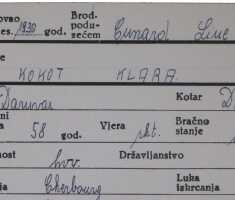 ovao Brod-
es. 1930 god. podu- Cunard Line
zećem
e KOKOT KLARA
Daruvar Kotar D
ni
a 58 god. Vjera rkt. Bračno
stanje
nost hrv. Državljanstvo
ja Cherbourg Luka
iskrcanja